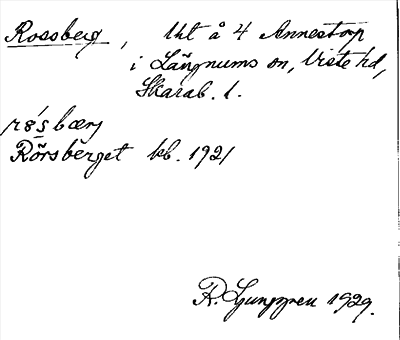 Rossberg, lht å 4 Annestorp
i Långnums sn, Viste hd,
Skarab. l.
rö́sbærj
Rörsberget kb. 1921
R. Ljunggren 1929.